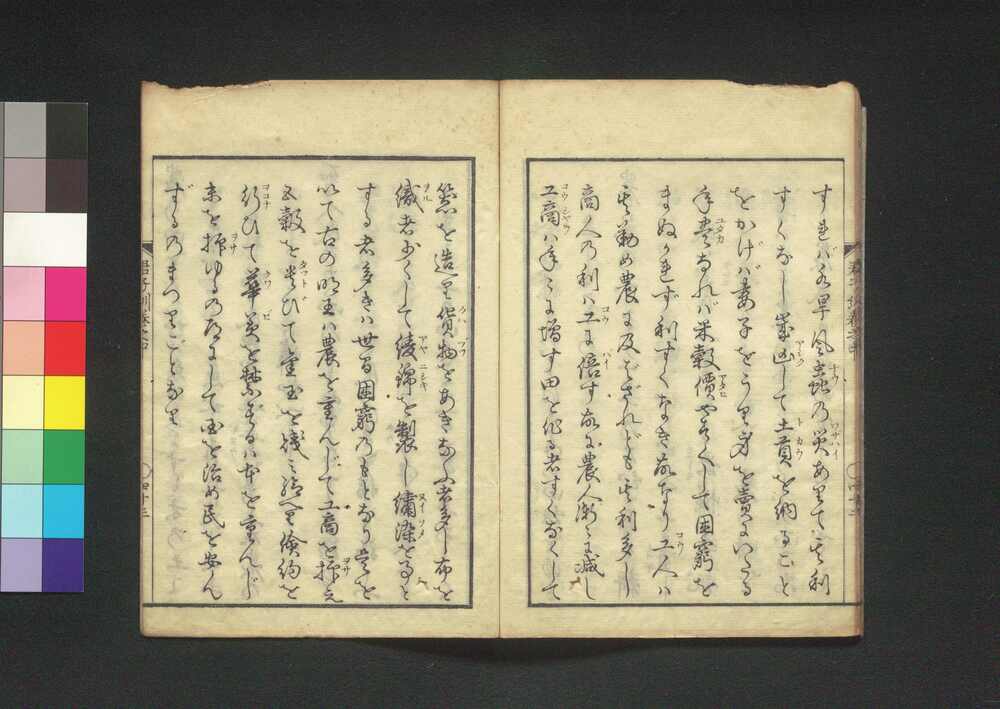 すれバ水旱風虫の災ありて其利
すくなし歳凶して土貢を納ることを
をかけバ妻子をうり身を賣にいたる
年豊なれバ米穀價やすくして困窮を
まぬかれず利すくなき故なり工人ハ
其勤め農に及バざれども其利多し
商人の利ハ工に倍す故に農人漸々に減し
工商ハ年々に増す田を作る者すくなくして
を造り貨物をあきなふ者多し布を
織者少くして綾錦を製し繍染を事と
する者多きハ世間困窮のもとなり是を
以て古の明王ハ農を重んじて工商を抑え
五穀を尊びて金玉を賤ミ給り儉約を
行ひて華美を禁ずるハ本を重んじ
末を抑ゆるの政にして国を治め民を安ん
ずるのまつりごとなり
君子訓巻之
四十三